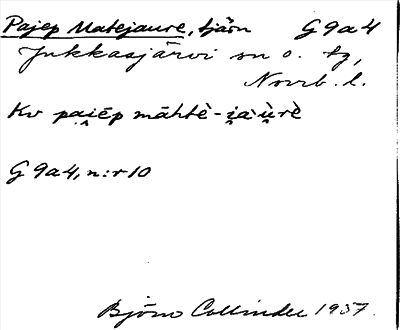 Pajep Matejaure, tjärn G9a4
Jukkasjärvi sn o. tg,
Norrb. l.
Kv pai̯ēp māhtè-i̯a̭ù̯rè
G 9a4, n:r 10
Björn Collinder 1957.